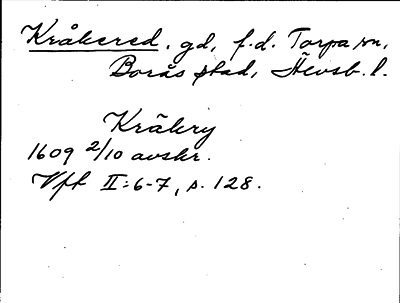 Kråkered, gd, f.d. Torpa sn,
Borås stad, Älvsb. l.
Kråkry
1609 2/10 avskr.
Vft II:6-7, s. 128.